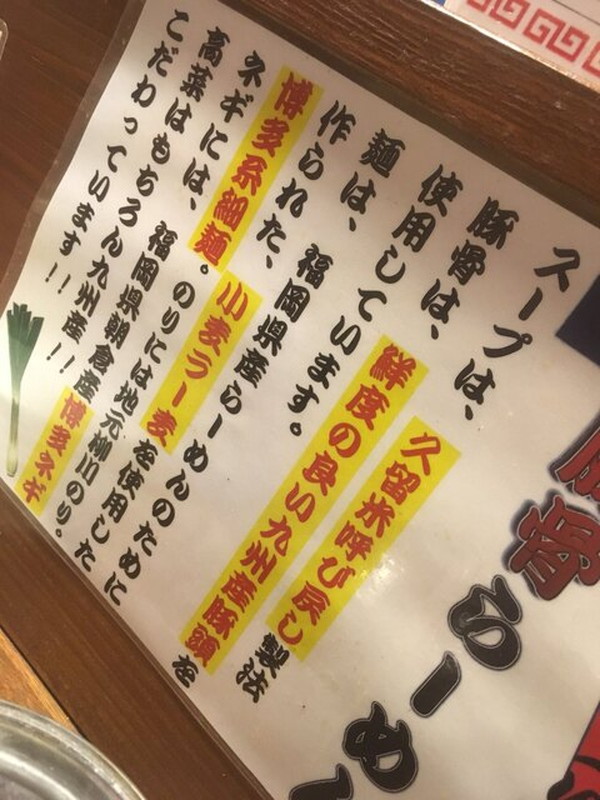 骨らーめ
スープは、久留米呼び戻し製法
豚骨は、鮮度の良い九州産豚頭を
使用しています。
麺は、福岡県産らーめんのために
作られた、小麦ラー麦を使用した
博多系細麺。のりには地元柳川のり。
ネギには、福岡県朝倉産博多ネギ
高菜はもちろん九州産!!
こだわっています!!